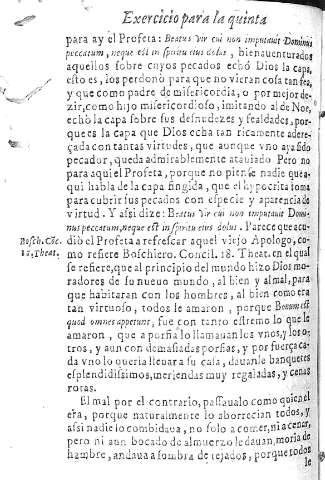 Exercicio para la quinta
para ay el Profeta: Beatus vir cui non imputauit Dominus
peccatum, neque est in spiritu eius dolus, bienauenturados
aquellos sobre cuyos pecados echó Dios la capa,
esto es, los perdonò para que no vieran cosa tan fea,
y que como padre de misericordia, o por mejor de-
zir, como hijo misericordioso, imitando al de Noè,
echò la capa sobre sus desnudezes y fealdades, por-
que es la capa que Dios echa tan ricamente adere-
çada con tantas virtudes, que aunque vno aya sido
pecador, queda admirablemente atauiado. Pero no
para aqui el Profeta, porque no piense nadie que a-
qui habla de la capa fingida, que el hypocrita toma
para cubrir sus pecados con especie y aparencia de
virtud. Y assi dize: Beatus vir cui non imputauit Domi-
nus peccatum, neque est in spiritu eius dolus. Parece que acu-
Bosch. Cõc.
18, Theat.
dió el Profeta a refrescar aquel viejo Apologo, co-
mo refiere Boschiero. Concil. 18. Theat. en el qual
se refiere, que al principio del mundo hizo Dios mo-
radores de su nueuo mundo, al bien y al mal, para
que habitaran con los hombres, al bien como era
tan virtuoso, todos le amaron, porque Bonum est
quod omnes appetunt, fue con tanto estremo lo que le
amaron, que a porfia lo llamauan los vnos, y los o-
tros, y aun con demasiadas porfias, y por fuerça ca-
da vno lo queria lleuar a su casa, dauanle banquetes
esplendidissimos, meriendas muy regaladas, y cenas
rotas.
El mal por el contrario, passaualo como quien el
era, porque naturalmente lo aborrecian todos, y
assi nadie lo combidaua, no solo a comer, ni a cenar,
pero ni aun bocado de almuerzo le dauan, moria de
hambre, andaua a sombra de tejados, porque todos
le